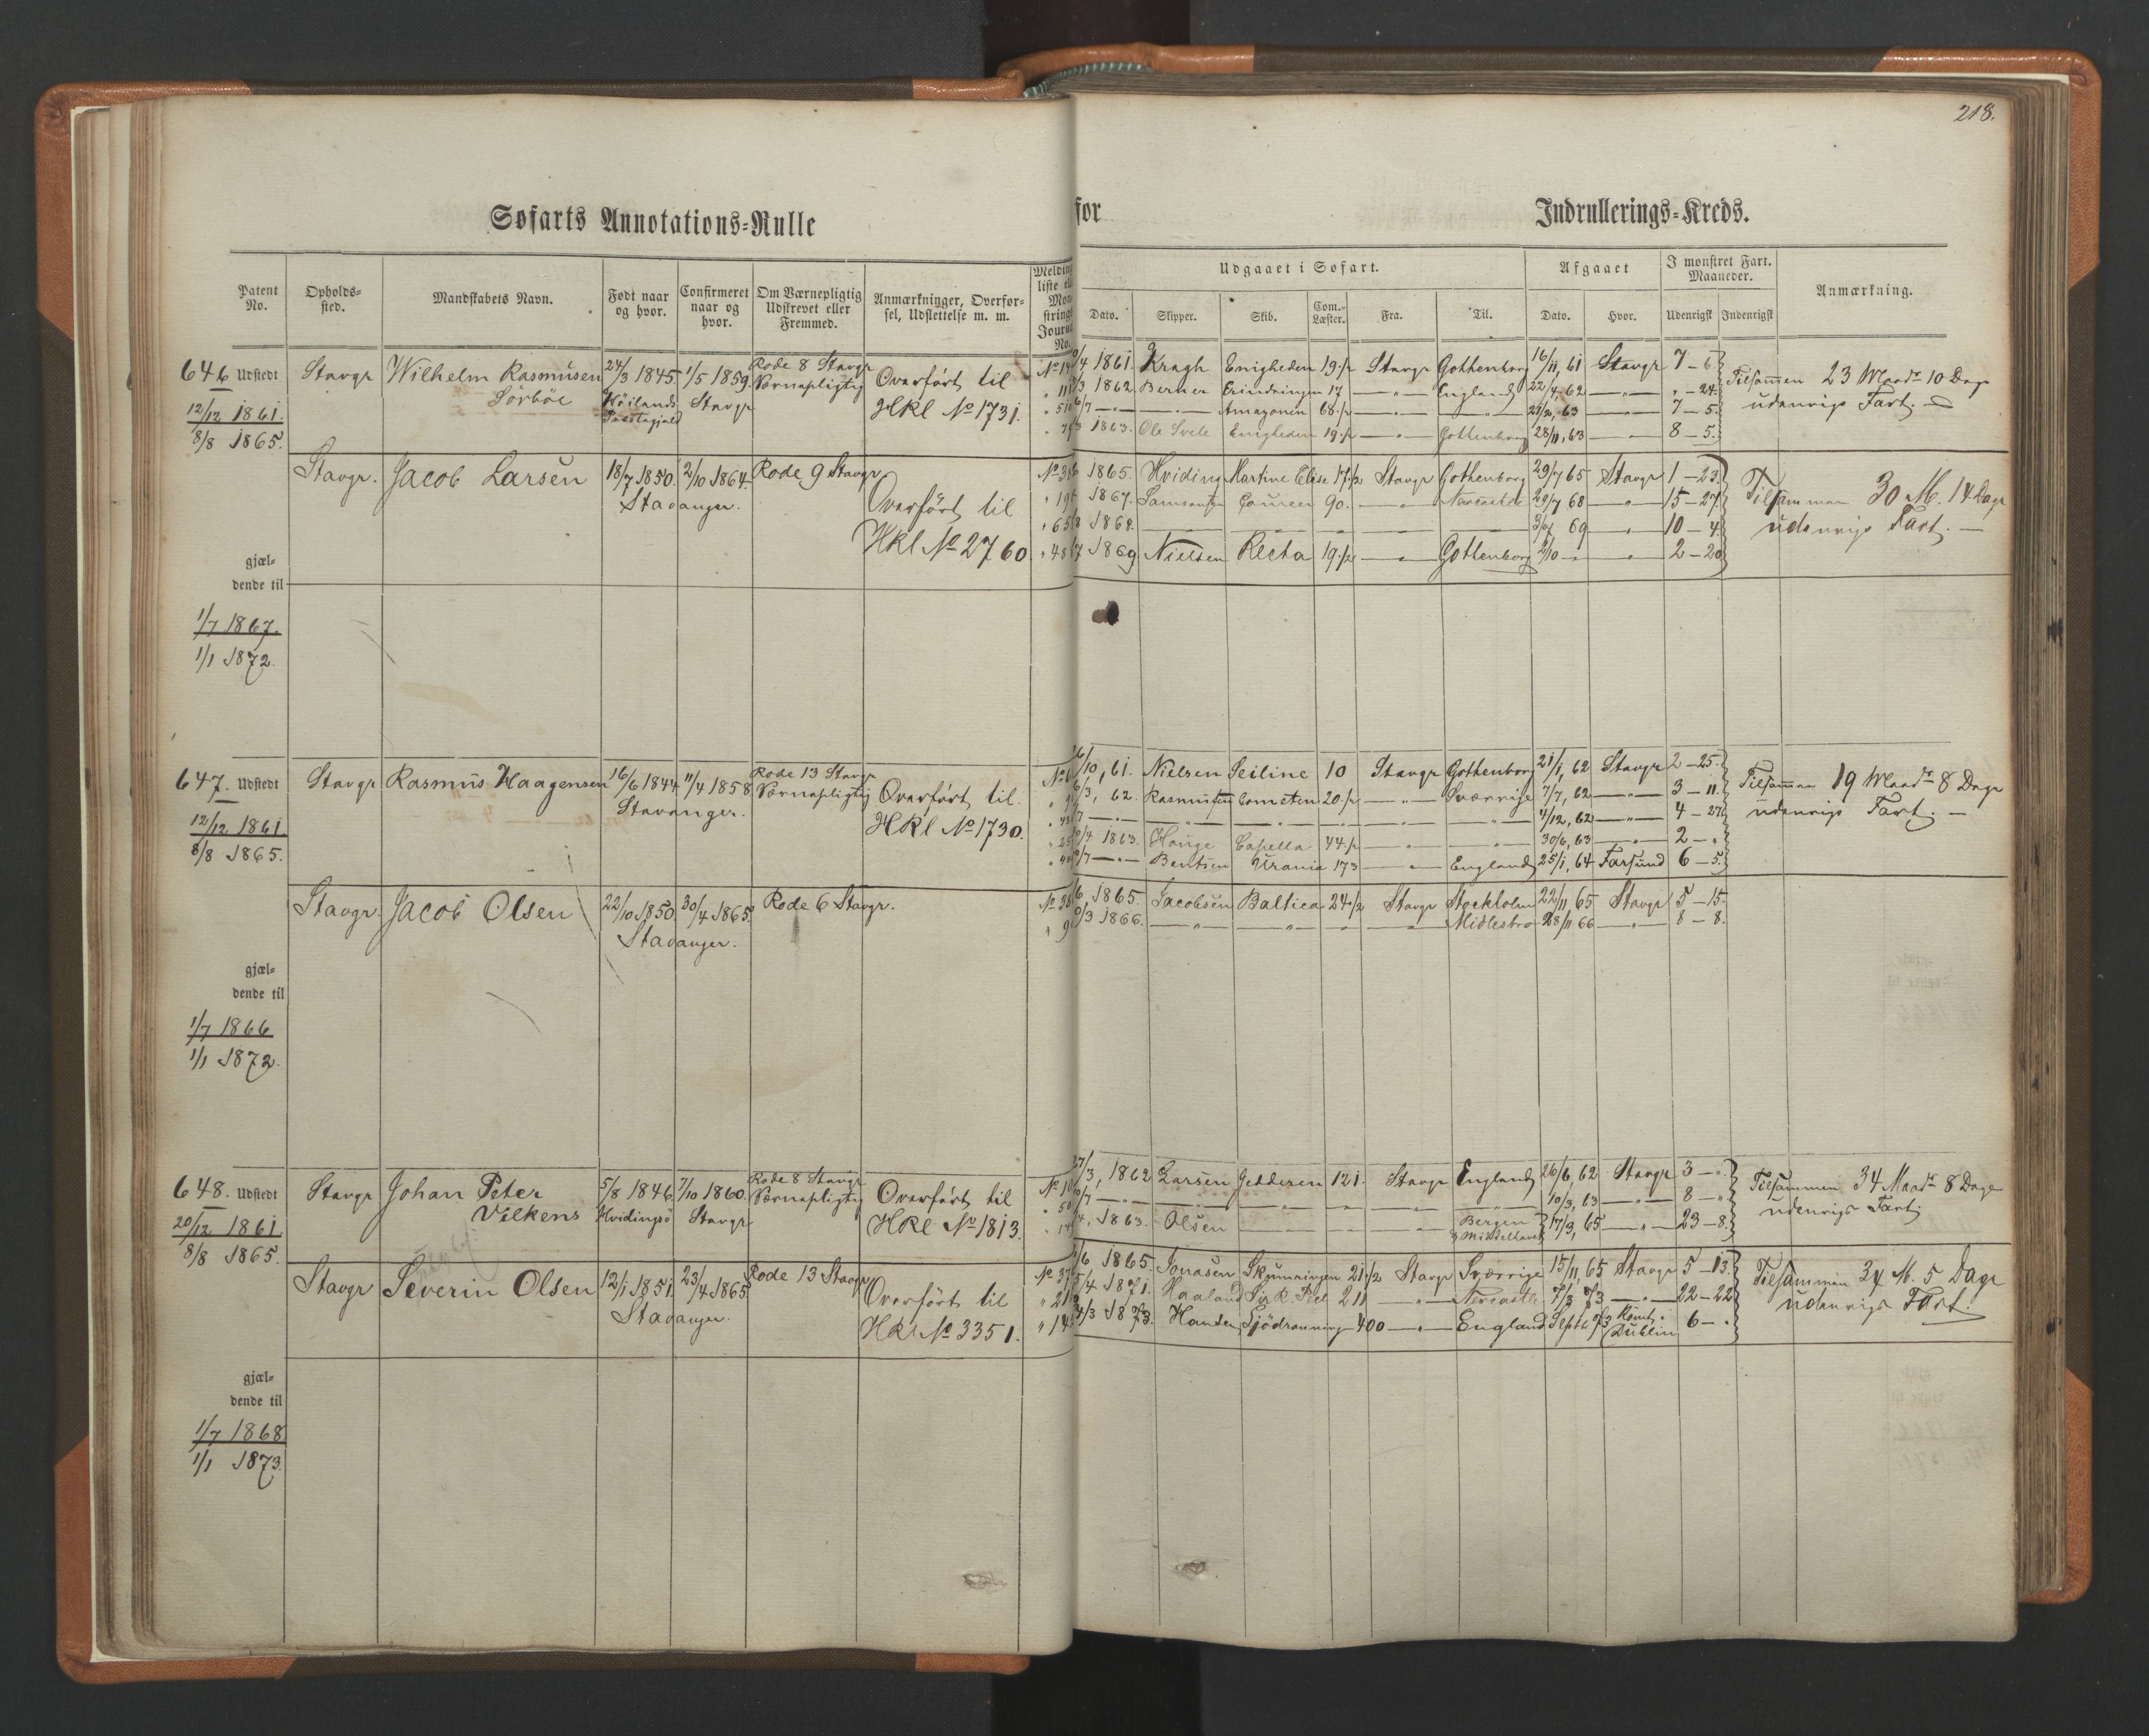 218.
Søfarts Annotations-Rulle for Indrullerings-Kreds.
Patent No.
Opholds-sted.
Mandskabets Navn.
Født naar og hvor.
Confirmeret naar og hvor.
Om Værnepligtig Udskrevet eller Fremmed.
Anmærkninger, Overfør-sel, Udslettelse m. m.
Udgaaet i Søfart.
Dato.
Skipper.
Skib.
Com.-Læster.
Fra.
Til.
Afgaaet
Dato.
Hvor.
I mønstret Fart. Maaneder.
Udenrigsk
Indenrigsk
Anmærkning.
646 Udstedt
12/12 1861.
8/8 1865.
Stavgr Wilhelm Rasmusen 24/3 1845. 1/5 1859. Rode 8 Stavgr
Sörböe Höilands Præstegjeld Stavgr Værnepligtig
Overført til
HKl No 1731.
1861. Kragh Enigheden 19 Stavgr Gothenborg 16/11, 61 Stavgr 7 - 6
1862. Berner Erindringen 17 — „ — England 22/4, 62 — „ — „ - 24.
— „ — — „ — Amazonen 68 — „ — 63 — „ — 7 - 5.
1863. Ole Svele Enigheden 19 — „ — Gothenborg 28/11, 63 — „ — 8 - 5.
Tilsammen 23 Maadr 10 Dage
udenrigs Fart.
Stavgr. Jacob Larsen 18/7 1850. 2/10 1864. Rode 9 Stavgr
Stavanger.
Overført til
HKl No 2760
1865. Hviding Martine Elise 17 1/2 Stavgr Gothenborg 29/7 65 Stavgr 1 - 23.
1867. 90. — „ — Newcastle 29/7 68 — „ — 15 - 27.
69 „ 10 - 4.
1869 Nielsen Recta 19 — „ — Gottenborg „ 2 - 20
Tilsammen 30 M. 14 Dage
udenrigs Fart.
gjæl-
dende til
1/7 1867.
1/1 1872.
647. Udstedt
12/12 1861.
8/8 1865.
Stavgr Rasmus Haagensen 16/6 1844 11/4 1858 Rode 13 Stavgr
Stavanger. Værnepligtig
Overført til
HKl No 1730.
26/10, 61. Nielsen Seiline 10 Stavgr Gothenborg 21/1, 62 Stavgr 2 - 25.
62. Rasmussen Cometen 20 — „ — Sværrige 7/7, 62 — „ — 3 - 11.
4/12, 62 — „ — 4 - 27
1863. Hauge Capella 44 — „ — „ 30/6, 63 — „ — 2 - „
— „ — Bentsen Urania 173 — „ — England 25/1, 64 Farsund 6 - 5.
Tilsammen 19 Maadr 8 Dage
udenrigs Fart.
Stavgr. Jacob Olsen 22/10 1850. 30/4 1865. Rode 6 Stavgr.
Stavanger.
1865. Jacobsen Baltica 24 1/2 Stavgr Stockholm 22/11 65 Stavgr 5 - 15.
1866. — „ — — „ — „ „ Midlesbro 28/11 66 — „ — 8 - 8.
gjæl-
dende til
1/7 1866
1/1 1872.
648. Udstedt
20/12 1861.
8/8 1865.
Stavgr Johan Peter 5/8 1846. 7/10 1860. Rode 8 Stavgr
Vilkens Hvidingsö Stavgr Værnepligtig
Overført til
HKl No 1813.
27/3, 1862 Larsen Jedderen 121. Stavgr England 26/6, 62 Stavgr 3 - „
10/3, 63 — „ — 8 - „
1863. Olsen Bergen & Middelhavet 17/3, 65 — „ — 23 - 8.
Tilsammen 34 Maadr 8 Dage
udenrigs Fart.
Stavgr Severin Olsen 12/1 1851. 23/4 1865. Rode 13 Stavgr
Stavanger.
Overført til
HKl No 3351.
1865. Jonasen Skumringen 21 1/2 Stavgr Sværrige 15/11, 65 Stavgr 5 - 13.
5/4 1871. Haaland 211 — „ — Newcastle 7/3 73 — „ — 22 - 22
1873. 400 — „ — England Septb 73 Dublin 6 - .
Tilsammen 34 M. 5 Dage
udenrigs Fart.
gjæl-
dende til
1/7 1868.
1/1 1873.